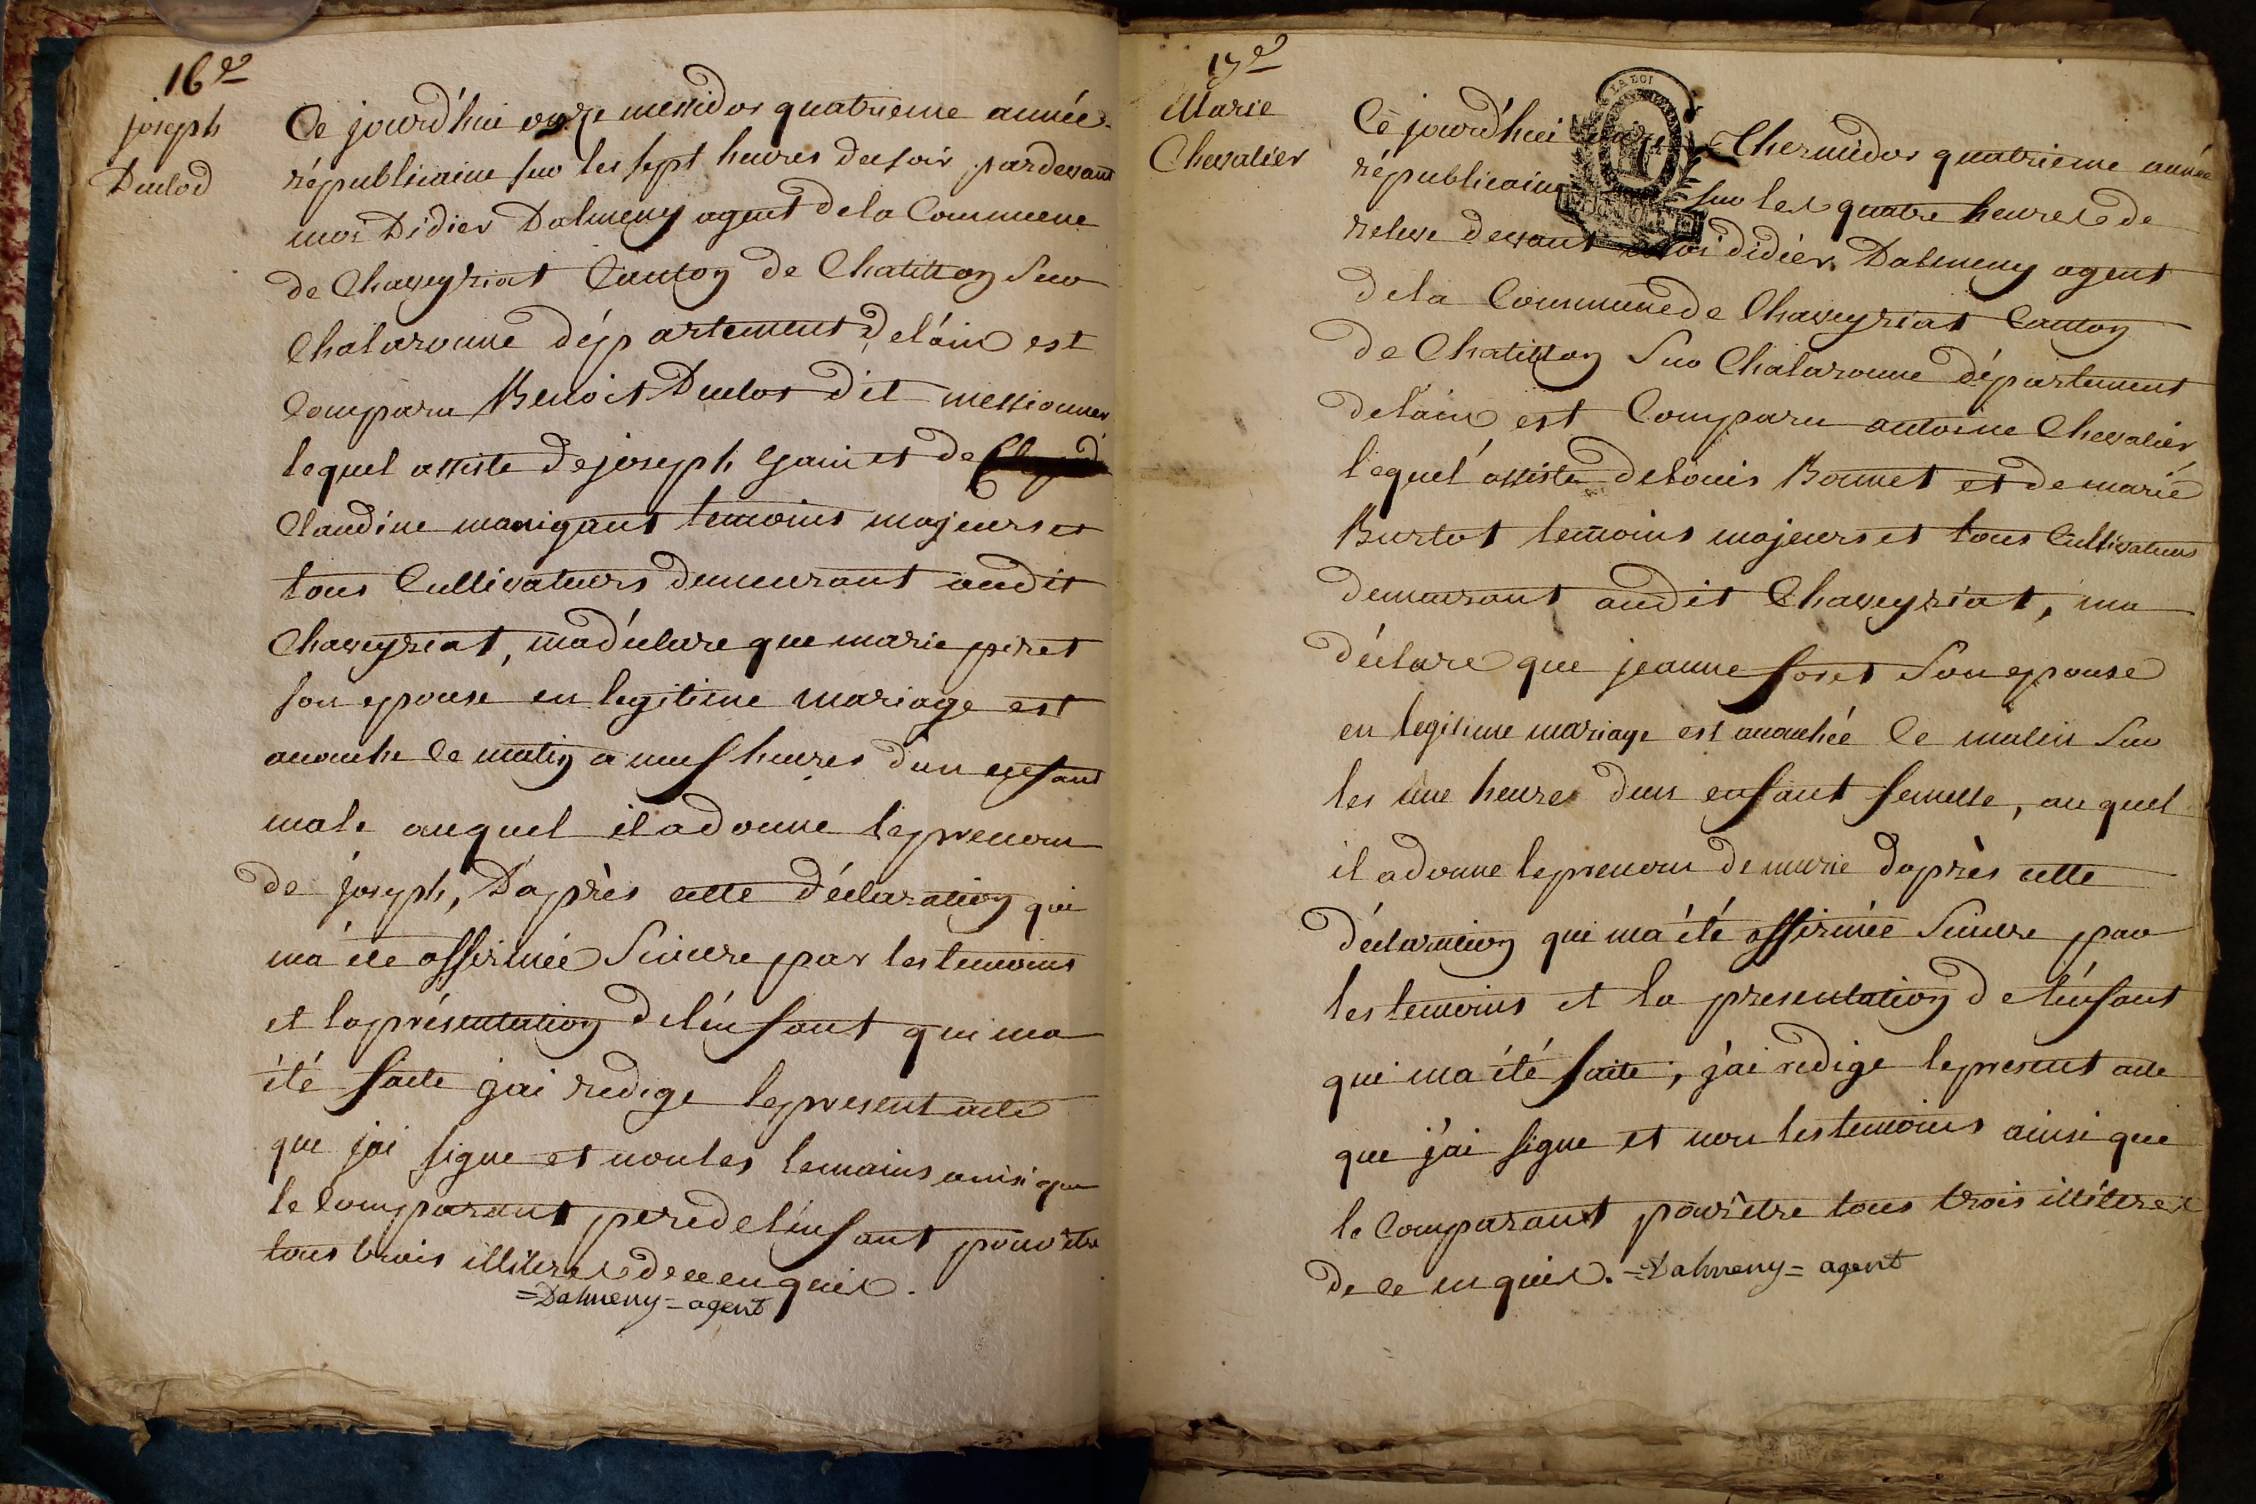 16e
joseph
Duclod
Ce jourd'hui onze messidor quatrieme année
républicaine sur les sept heures du soir pardevant
moi Didier Dalmeny agent de la Commune
de Chaveyriat Canton de Chatillon Sur
Chalaronne département deláin est
Comparu Benoit Duclos dit messionner
lequel assiste de joseph Gainet de
Claudine manigant temoins majeurs et
tous Cultivateurs demeurant audit
Chaveyriat, ma déclare que marie piret
son epouse en legitime mariage est
acouche ce matin a neuf heures dun enfant
male auquel il a donne le prenom
de joseph, D'après cette déclaration qui
ma été affirmée Sincere par les temoins
et la présentation de lénfant qui ma
été faite jai redige le present acte
que jai signe et non les temoins ainsi que
le Comparant pere de lénfant pour être
tous trois illiteres de ce enquis.
=Dalmeny= agent
17e
Marie
Chevalier
Ce jourd'hui Thermidor quatrieme année
républicaine sur les quatre heures de
releve devant moi didier Dalmeny agent
de la Commune de Chaveyriat Canton
de Chatillon Sur Chalaronne département
delain est Comparu antoine Chevalier
lequel assiste de Louis Bonnet et de marie
Burtot temoins majeurs et tous Cultivateurs
demeurant audit Chaveyriat, ma
déclare que jeanne foret Son epouse
en legitime mariage est acouchée Ce matin Sur
les une heure dun enfant femelle, auquel
il a donne le prenom de marie d'après cette
déclaration qui ma été affirmée Sincere par
les temoins et la presentation de lénfant
qui ma été faite, j'ai redige le present acte
que j'ai signe et non les temoins ainsi que
le Comparant pour être tous trois illiteres
de ce enquis. =Dalmeny= agent